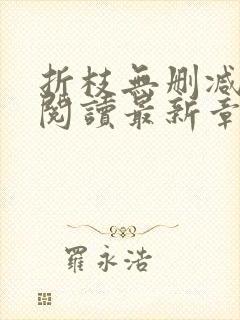 折枝無刪减
閱讀最新章
羅永浩